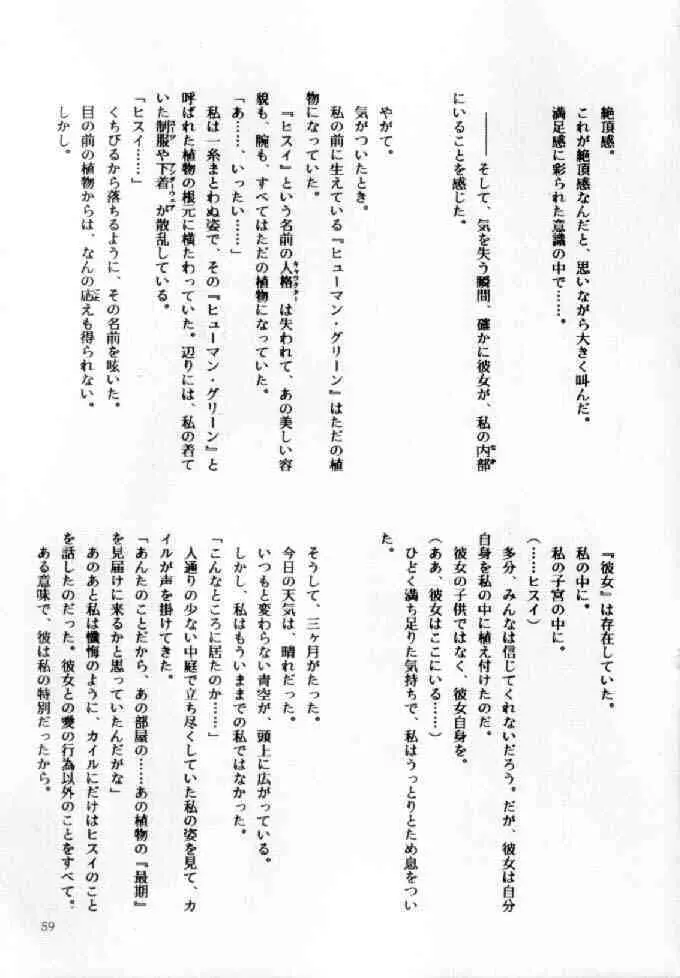 絶頂感。
これが絶頂感なんだと、思いながら大きく叫んだ。
満足感に彩られた意識の中で……。
――――そして、気を失う瞬間、確かに彼女が、私の内部
にいることを感じた。
やがて。
気がついたとき。
私の前に生えている『ヒューマン・グリーン』はただの植
物になっていた。
『ヒスイ』という名前の人格は失われて、あの美しい容
貌も、腕も、すべてはただの植物になっていた。
「あ……、いったい……」
私は一糸まとわぬ姿で、その『ヒューマン・グリーン』と
呼ばれた植物の根元に横たわっていた。辺りには、私の着て
いた制服や下着が散乱している。
「ヒスイ……」
くちびるから落ちるように、その名前を呟いた。
目の前の植物からは、なんの応えも得られない。
しかし。
『彼女』は存在していた。
私の中に。
私の子宮の中に。
(……ヒスイ)
多分、みんなは信じてくれないだろう。だが、彼女は自分
自身を私の中に植え付けたのだ。
彼女の子供ではなく、彼女自身を。
(ああ、彼女はここにいる……)
ひどく満ち足りた気持ちで、私はうっとりとため息をつい
た。
そうして、三ヶ月がたった。
今日の天気は、晴れだった。
いつもと変わらない青空が、頭上に広がっている。
しかし、私はもういままでの私ではなかった。
「こんなところに居たのか……」
人通りの少ない中庭で立ち尽くしていた私の姿を見て、カ
イルが声を掛けてきた。
「あんたのことだから、あの部屋の……あの植物の『最期』
を見届けに来るかと思っていたんだがな」
あのあと私は懺悔のように、カイルにだけはヒスイのこと
を話したのだった。彼女との愛の行為以外のことをすべて。
ある意味で、彼は私の特別だったから。
59